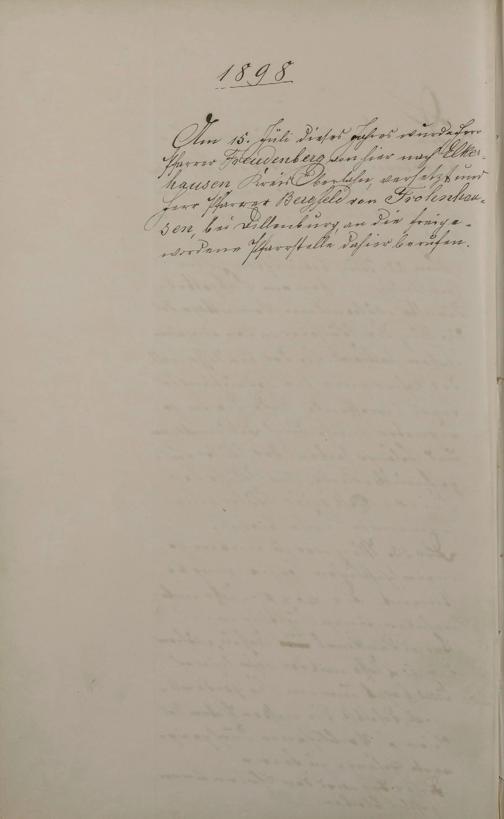 1898
Am 15. Juli dieses Jahres wurde Herr
Pfarrer Freudenberg von hier nach Elker-
hausen, Kreis Oberlahn, versetzt und
Herr Pfarrer Bergfeld von Frohnhau-
sen, bei Dillenburg, an die freige-
wordene Pfarrstelle dahier berufen.